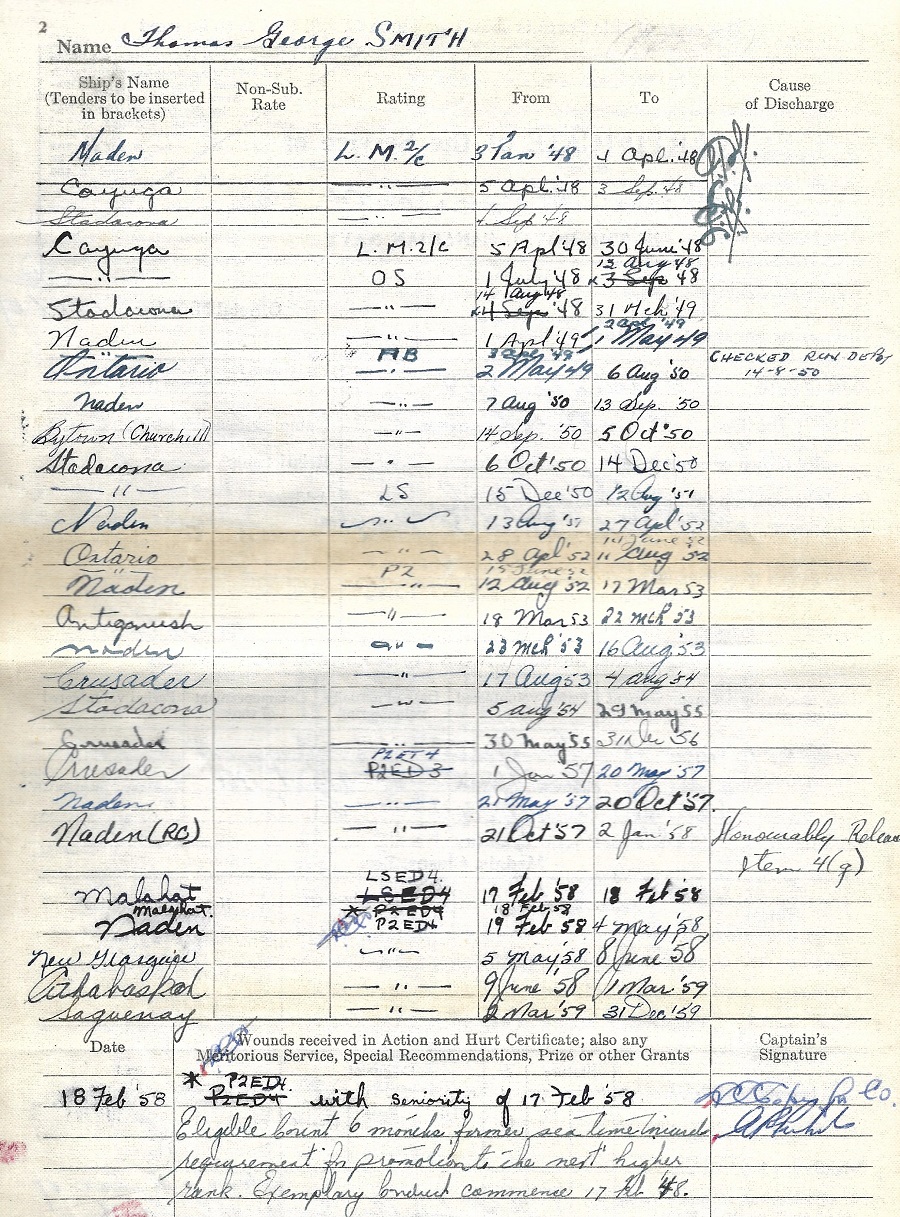 2
Name Thomas George SMITH
Ship's Name (Tenders to be inserted in brackets) Non-Sub. Rate Rating From To Cause of Discharge
Naden L.M. 2/c 3 Jan '48 4 Apl. '48
Cayuga —"— 5 Apl. '48 3 Sep. '48
Stadacona —"— 4 Sep '48
Cayuga L.M. 2/c 5 Apl '48 30 June '48
13 Aug '48
—"— OS 1 July '48 3 Sep '48
14 Aug '48
Stadacona —"— 4 Sep. '48 31 Mch '49
2 Apl '49
Naden —"— 1 Apl '49 1 May 49
AB 3 Apl '49
Ontario —"— 2 May 49 6 Aug '50 CHECKED RUN DEPOT
14-8-50
Naden —"— 7 Aug '50 13 Sep. '50
Bytown (Churchill) —"— 14 Sep. '50 5 Oct '50
Stadacona —"— 6 Oct '50 14 Dec '50
—"— LS 15 Dec '50 12 Aug '51
Naden —"— 13 Aug '51 27 Apl '52
14 June 52
Ontario —"— 28 Apl '52 11 Aug '52
P2 15 June 52
Naden —"— 12 Aug '52 17 Mar 53
Antigonish —"— 18 Mar 53 22 Mch 53
Naden —"— 23 Mch '53 16 Aug '53
Crusader —"— 17 Aug 53 4 Aug '54
Stadacona —"— 5 Aug '54 29 May 55
Crusader —"— 30 May 55 31 Dec 56
P2ET4
Crusader P2ED3 1 Jan '57 20 May '57
Naden —"— 21 May '57 20 Oct '57
Naden (RC) —"— 21 Oct '57 2 Jan '58 Honourably Release
Item 4(g)
LSED4.
Malahat LSED4 17 Feb '58 18 Feb '58
* P2ED4 18 Feb 58
Naden P2ED4 19 Feb '58 4 May '58
New Glasgow —"— 5 May '58 8 June '58
Athabaskan —"— 9 June '58 1 Mar '59
Saguenay —"— 2 Mar '59 31 Dec '59
Date Wounds received in Action and Hurt Certificate; also any Meritorious Service, Special Recommendations, Prize or other Grants Captain's Signature
* P2ED4.
18 Feb '58 P2ED4 with seniority of 17 Feb '58 for Co.
Eligible Count 6 months former sea time towards
requirement for promotion to the next higher
rank. Exemplary Conduct commence 17 Feb '48.